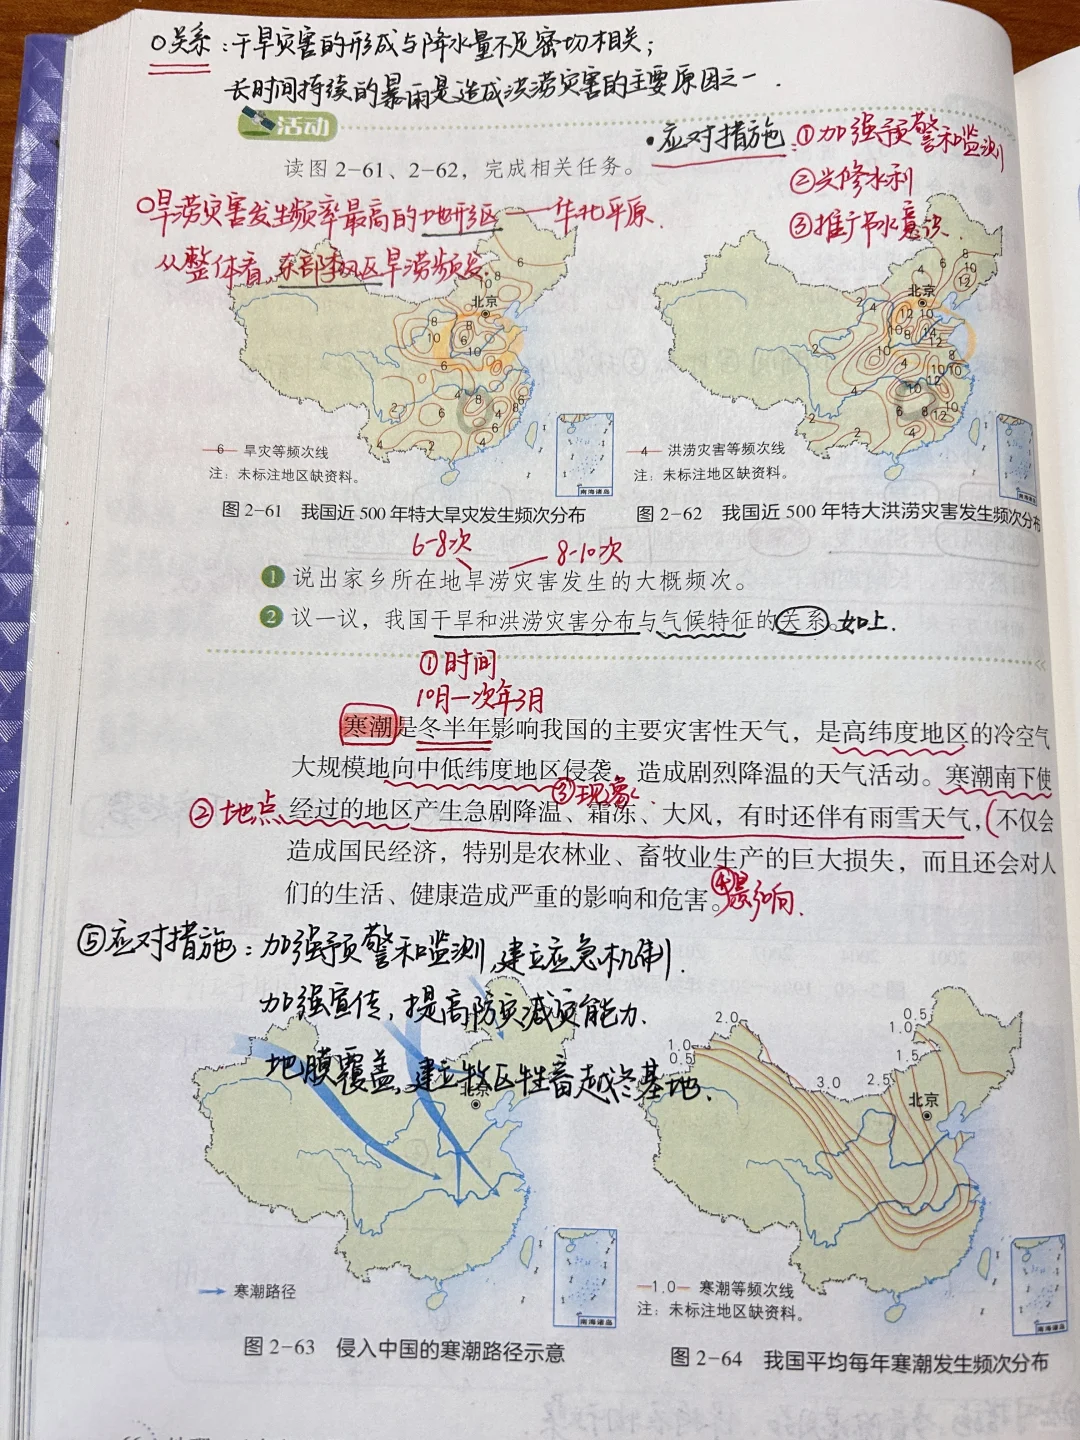 ○关系：干旱灾害的形成与降水量不足密切相关；
长时间持续的暴雨是造成洪涝灾害的主要原因之一.
活动
·应对措施：①加强预警和监测
读图2-61、2-62，完成相关任务。
②兴修水利
○旱涝灾害发生频率最高的地形区——华北平原.
③推广节水意识.
从整体看,东部季风区旱涝频发.
北京
北京
—6— 旱灾等频次线
注：未标注地区缺资料。
南海诸岛
—4— 洪涝灾害等频次线
注：未标注地区缺资料。
南海诸岛
图2-61 我国近500年特大旱灾发生频次分布
图2-62 我国近500年特大洪涝灾害发生频次分布
6-8次
8-10次
1 说出家乡所在地旱涝灾害发生的大概频次。
2 议一议，我国干旱和洪涝灾害分布与气候特征的关系。如上.
①时间
10月—次年3月
寒潮是冬半年影响我国的主要灾害性天气，是高纬度地区的冷空气
大规模地向中低纬度地区侵袭，造成剧烈降温的天气活动。寒潮南下使
③现象
②地点
经过的地区产生急剧降温、霜冻、大风，有时还伴有雨雪天气，(不仅会
造成国民经济，特别是农林业、畜牧业生产的巨大损失，而且还会对人
们的生活、健康造成严重的影响和危害。
④影响.
⑤应对措施：加强预警和监测,建立应急机制.
加强宣传,提高防灾减灾能力.
地膜覆盖,建立牧区牲畜越冬基地.
北京
2.0
1.0
0.5
3.0
2.5
1.5
1.0
0.5
北京
寒潮路径
南海诸岛
—1.0— 寒潮等频次线
注：未标注地区缺资料。
南海诸岛
图2-63 侵入中国的寒潮路径示意
图2-64 我国平均每年寒潮发生频次分布